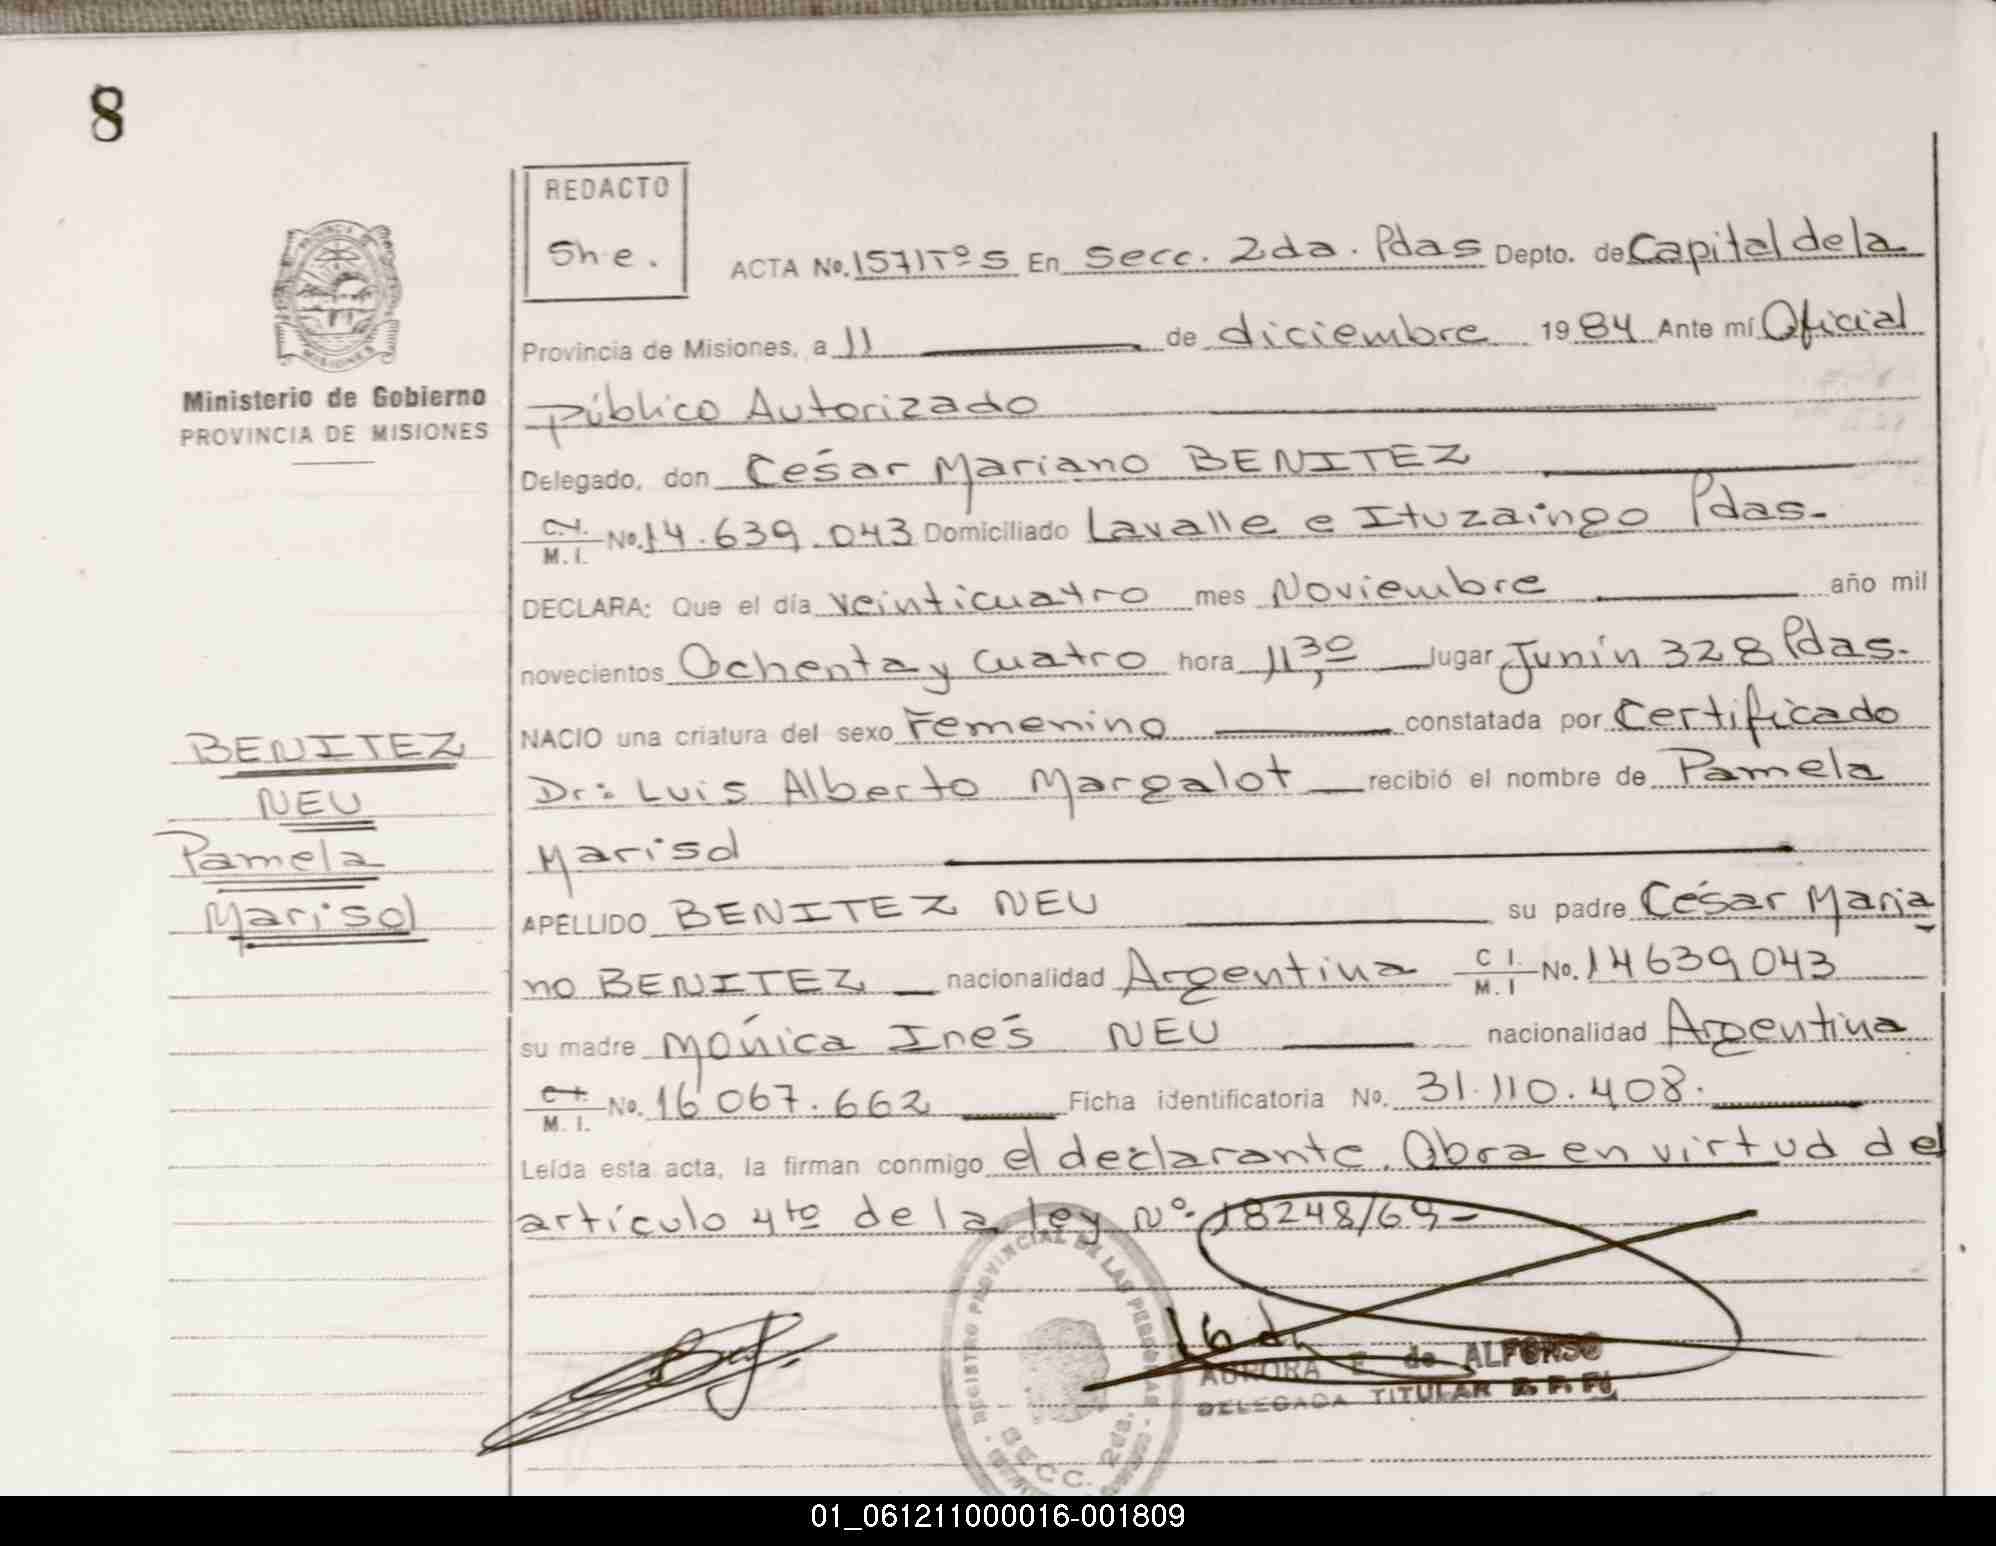 8
REDACTO
She.
ACTA No. 1571 Tº 5 En Secc. 2da. Pdas Depto. de Capital de la
Provincia de Misiones, a 11 de diciembre 1984 Ante mí Oficial
público Autorizado
Ministerio de Gobierno
PROVINCIA DE MISIONES
Delegado, don César Mariano BENITEZ
C.I. M. I. No. 14.639.043 Domiciliado Lavalle e Ituzaingo Pdas.
DECLARA: Que el día veinticuatro mes Noviembre año mil
novecientos Ochenta y cuatro hora 11,30 lugar Junín 328 Pdas.
NACIO una criatura del sexo Femenino constatada por Certificado
Dr: Luis Alberto Margalot recibió el nombre de Pamela
Marisol
BENITEZ
NEU
Pamela
Marisol
APELLIDO BENITEZ NEU su padre César Maria
no BENITEZ nacionalidad Argentina C I. M. I No. 14639043
su madre Mónica Inés NEU nacionalidad Argentina
C.I. M. I. No. 16 067.662 Ficha identificatoria No. 31.110.408.
Leída esta acta, la firman conmigo el declarante. Obra en virtud del
artículo 4to de la ley Nº 18248/69-
REGISTRO PROVINCIAL DE LAS PERSONAS
SECC. 2da.
AURORA E. de ALFONSO
DELEGADA TITULAR R. P. P.
01_061211000016-001809